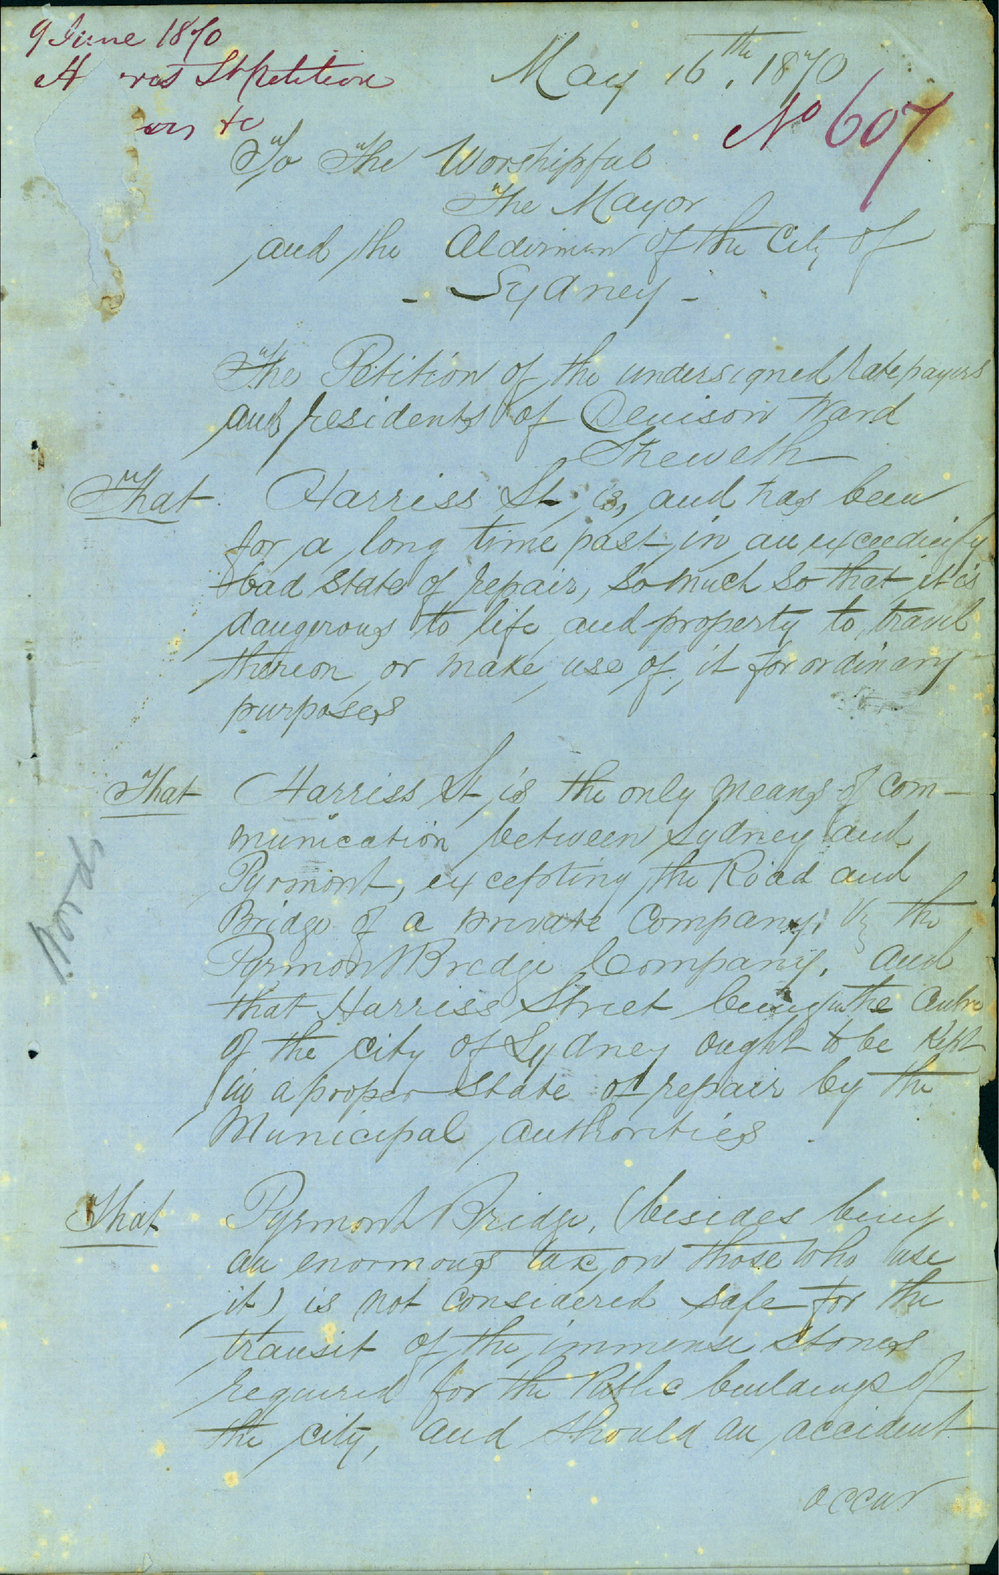 9 June 1870
St Petition
May 16th, 1870
No 607
To The Worshipful
The Mayor
and the Aldermen of the City of
- Sydney -
The Petition of the undersigned Ratepayers
and residents of Denison Ward
Sheweth
That Harriss St, is, and has been
for a long time past, in an exceedingly
bad state of repair, so much so that it is
dangerous to life and property to travel
thereon, or make use of, it for ordinary
purposes
That Harriss St, is the only means of com-
munication between Sydney and
Pyrmont, excepting the Road and
Bridge of a private Company, Viz the
Pyrmont Bridge Company, and
that Harriss Street being in the Centre
of the city of Sydney ought to be kept
in a proper state of repair by the
Municipal authorities.
That Pyrmont Bridge, (besides being
an enormous tax on those who use
it) is not considered safe for the
transit of the immense stones
required for the Public buildings of
the city, and should an accident
occur